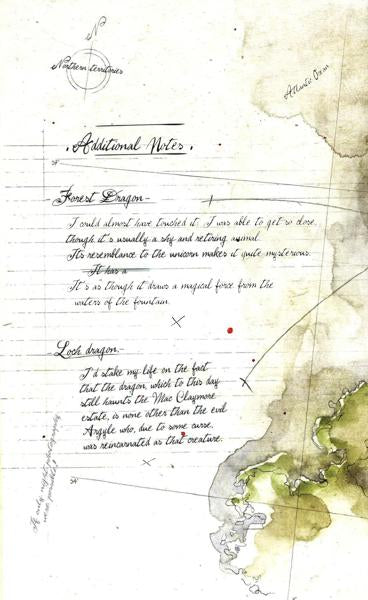 N
Northern territories
Atlantic Ocean
. Additional Notes .
Forest Dragon-
I could almost have touched it. I was able to get so close,
though it's usually a shy and retiring animal.
Its resemblance to the unicorn makes it quite mysterious.
It has a
It's as though it draws a magical force from the
waters of the fountain.
Loch dragon.-
I'd stake my life on the fact
that the dragon, which to this day
still haunts the Mac Claymore
estate, is none other than the evil
Argyle who, due to some curse,
was reincarnated as that creature.
If only night photography
were possible!